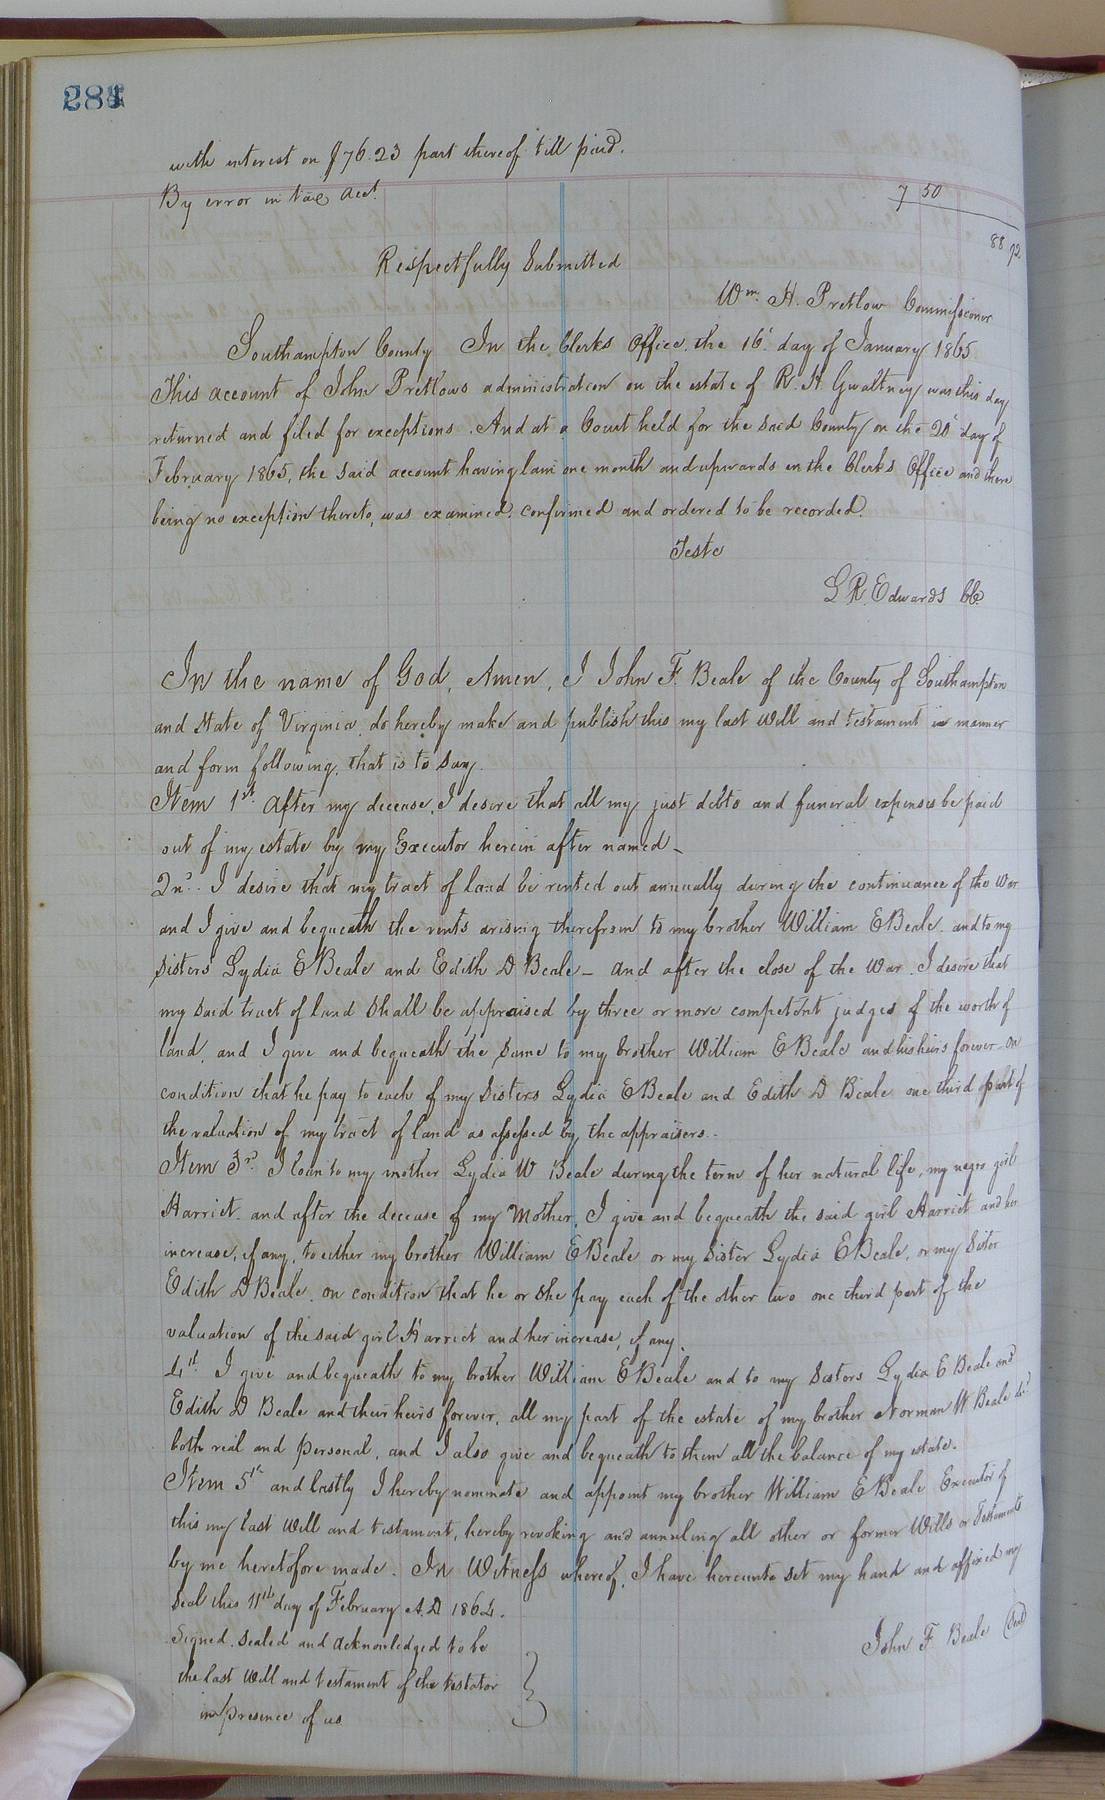 284
with interest on $76.23 part thereof till paid.
By error in Tax Acct. 7 50
88 72
Respectfully Submitted
Wm. H. Pretlow Commissioner
Southampton County In the Clerks Office, the 16' day of January 1865
This account of John Pretlows administration on the estate of R. H. Gwaltney was this day
returned and filed for exceptions. And at a Court held for the said County on the 20' day of
February 1865, the said account having lain one month and upwards in the Clerks Office and there
being no exception thereto, was examined, confirmed and ordered to be recorded.
Teste
L R. Edwards CC.
In the name of God, Amen, I John F. Beale of the County of Southampton
and State of Virginia, do hereby make and publish this my last will and testament in manner
and form following, that is to say.
Item 1st. After my decease, I desire that all my just debts and funeral expenses be paid
out of my estate by my Executor herein after named -
2nd. I desire that my tract of land be rented out annually during the continuance of the war
and I give and bequeath the rents arising therefrom to my brother William E Beale, and to my
sisters Lydia E Beale and Edith D Beale - and after the close of the war, I desire that
my said tract of land shall be appraised by three or more competent judges of the worth of
land, and I give and bequeath the same to my brother William E Beale and his heirs forever - on
condition that he pay to each of my sisters Lydia E Beale and Edith D Beale one third part of
the valuation of my tract of land as assessed by the appraisers.-
Item 3rd. I loan to my mother Lydia W Beale during the term of her natural life, my negro girl
Harriet, and after the decease of my Mother, I give and bequeath the said girl Harriet and her
increase, if any, to either my brother William E Beale or my sister Lydia E Beale, or my sister
Edith D Beale, on condition that he or she pay each of the other two one third part of the
valuation of the said girl Harriet and her increase, if any.
4th. I give and bequeath to my brother William E Beale and to my sisters Lydia E Beale and
Edith D Beale and their heirs forever, all my part of the estate of my brother Norman W Beale dec'd
both real and personal, and I also give and bequeath to them all the balance of my estate.
Item 5th and lastly I hereby nominate and appoint my brother William E Beale Executor of
this my last will and testament, hereby revoking and annuling all other or former Wills or Testaments
by me heretofore made. In Witness whereof, I have hereunto set my hand and affixed my
seal this 11th day of February A.D 1864.
John F. Beale (Seal)
Signed, sealed and acknowledged to be
the last will and testament of the testator
in presence of us